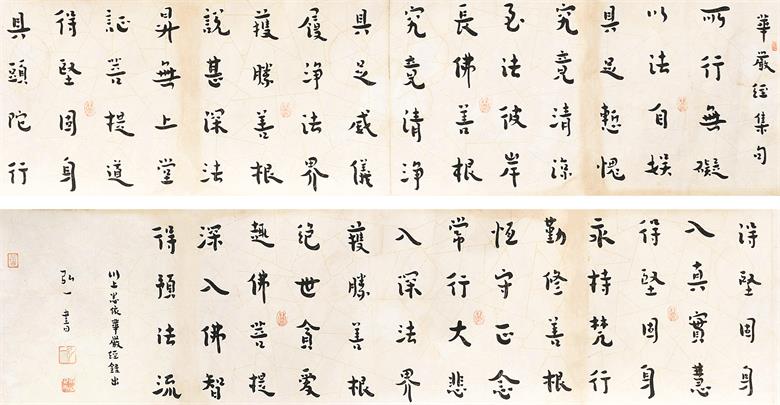 華嚴經集句
所行無礙
以法自娛
具足慙愧
究竟清涼
至法彼岸
長佛善根
究竟清淨
具足威儀
履淨法界
獲勝善根
說甚深法
昇無上堂
証菩提道
得堅固身
具頭陀行
得堅固身
入真實慧
得堅固身
永持梵行
勤修善根
恆守正念
常行大悲
入深法界
獲勝善根
絕世貪愛
趣佛菩提
深入佛智
得預法流
以上悉依華嚴經錄出
弘一書